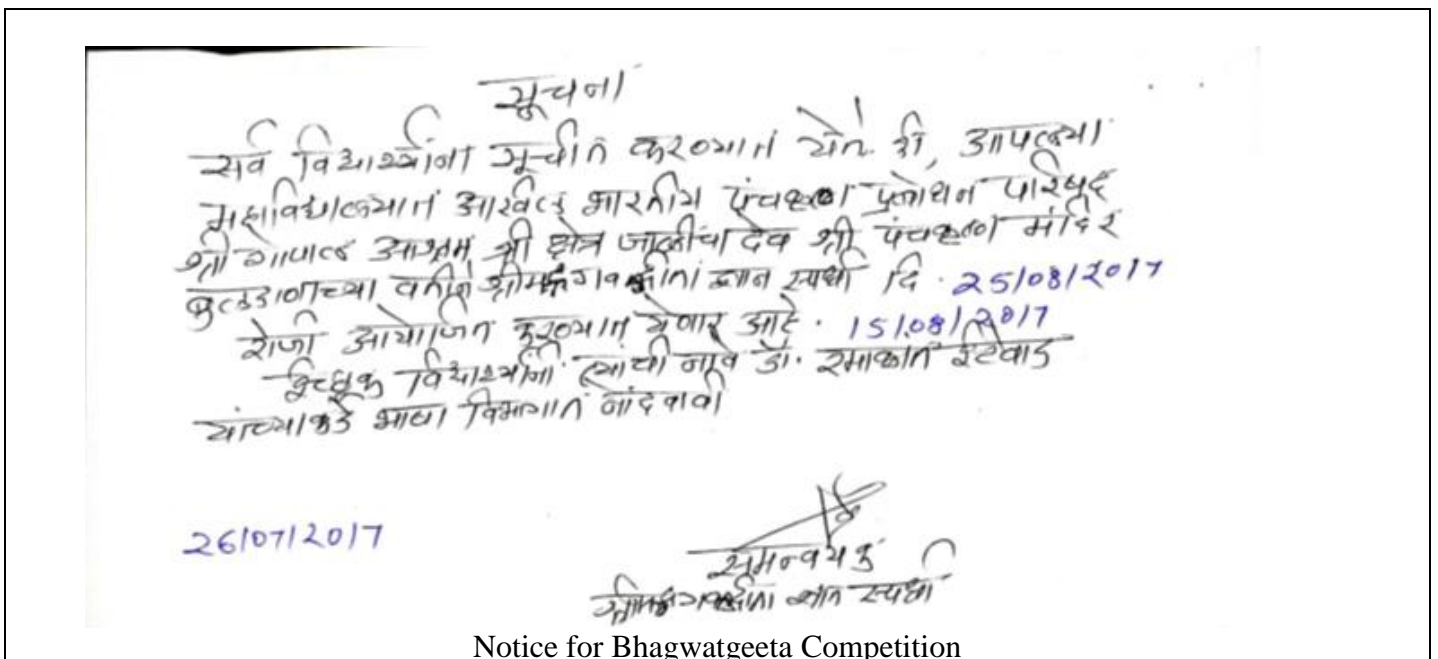 सूचना
सर्व विद्यार्थ्यांना सूचीत करण्यात येते की, आपल्या
महाविद्यालयात अखिल भारतीय पंचकृष्ण प्रबोधन परिषद
श्री गोपाल आश्रम, श्री क्षेत्र जाळीचा देव श्री पंचकृष्ण मंदिर
बुलडाणाच्या वतीने श्रीमद्भगवद्गीता ज्ञान स्पर्धा दि. 25/08/2017
रोजी आयोजित करण्यात येणार आहे. 15/08/2017
इच्छुक विद्यार्थ्यांनी त्यांची नावे डॉ. रमाकांत
यांच्याकडे भाषा विभागात नोंदवावी
26/07/2017
समन्वयक
श्रीमद्भगवद्गीता ज्ञान स्पर्धा
Notice for Bhagwatgeeta Competition